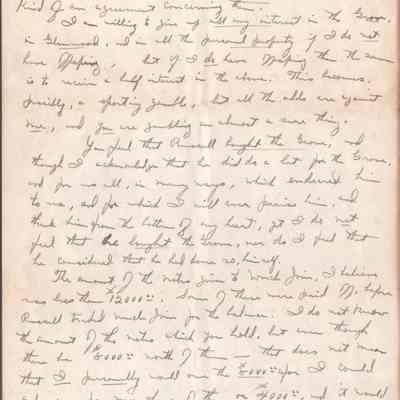 Kind of an agreement concerning them.
I am willing to give up all my interest in the Grove,
in Glenwood, and in all the personal property if I do not
have, but if I do have then the same
is to receive a half interest in the above. This becomes,
possibly, a sporting gamble, but all the odds are against
me, and you are gambling on almost a sure thing.
You feel that Russell bought the Grove, and
though I acknowledge that he did do a lot for the Grove,
and for us all, in many ways, which endeared him
to me, and for which I will ever him, and
thank him from the bottom of my heart, yet I do not
feel that he bought the Grove, nor do I feel that
he considered that he had done so, himself.
The amount of the notes given to Uncle Jim, I believe
was less than 12000.00. Some of these were paid before
Russell Uncle Jim for the balance. I do not know
the amount of the notes which you hold, but even though
there be 8000.00 worth of them — that does not mean
that I personally would owe the 8000.00, for I could
the or 4000.00, and it would